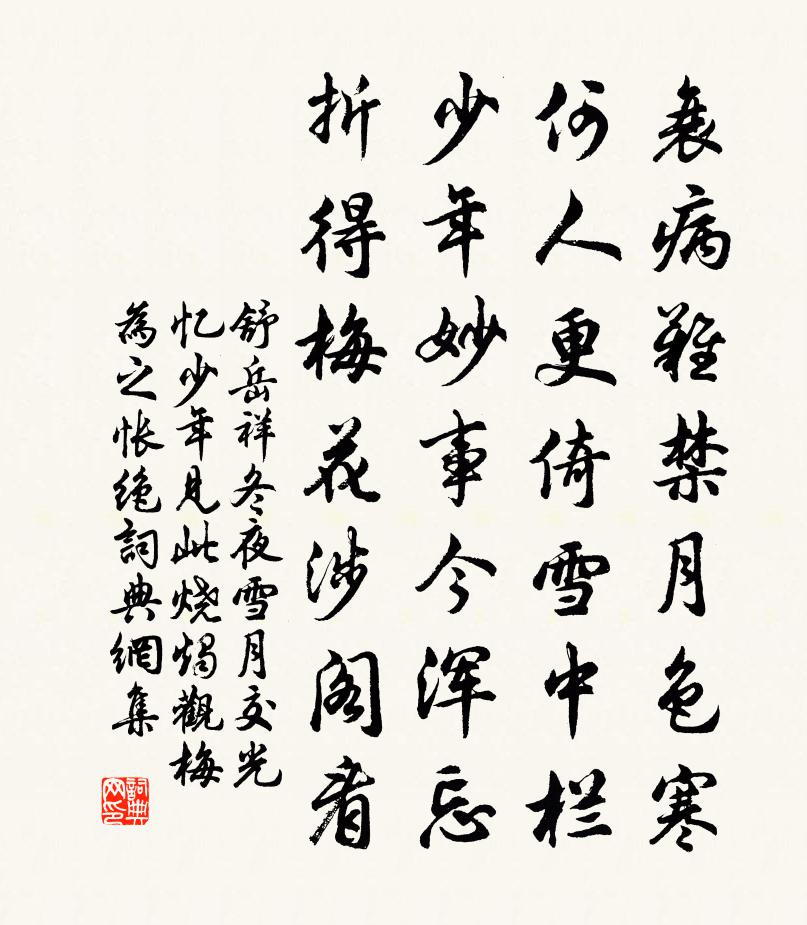 衰病難禁月色寒
何人更倚雪中栏
少年妙事今浑忘
折得梅花涉阁看
舒岳祥冬夜雪月交光
忆少年見此烧燭觀梅
為之怅絶詞典網集
詞典
网印